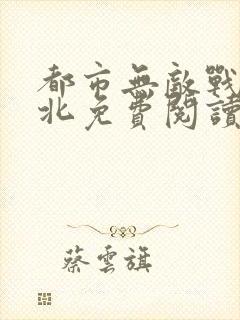 都市無敵戰
北免費閱讀
蔡雲旗